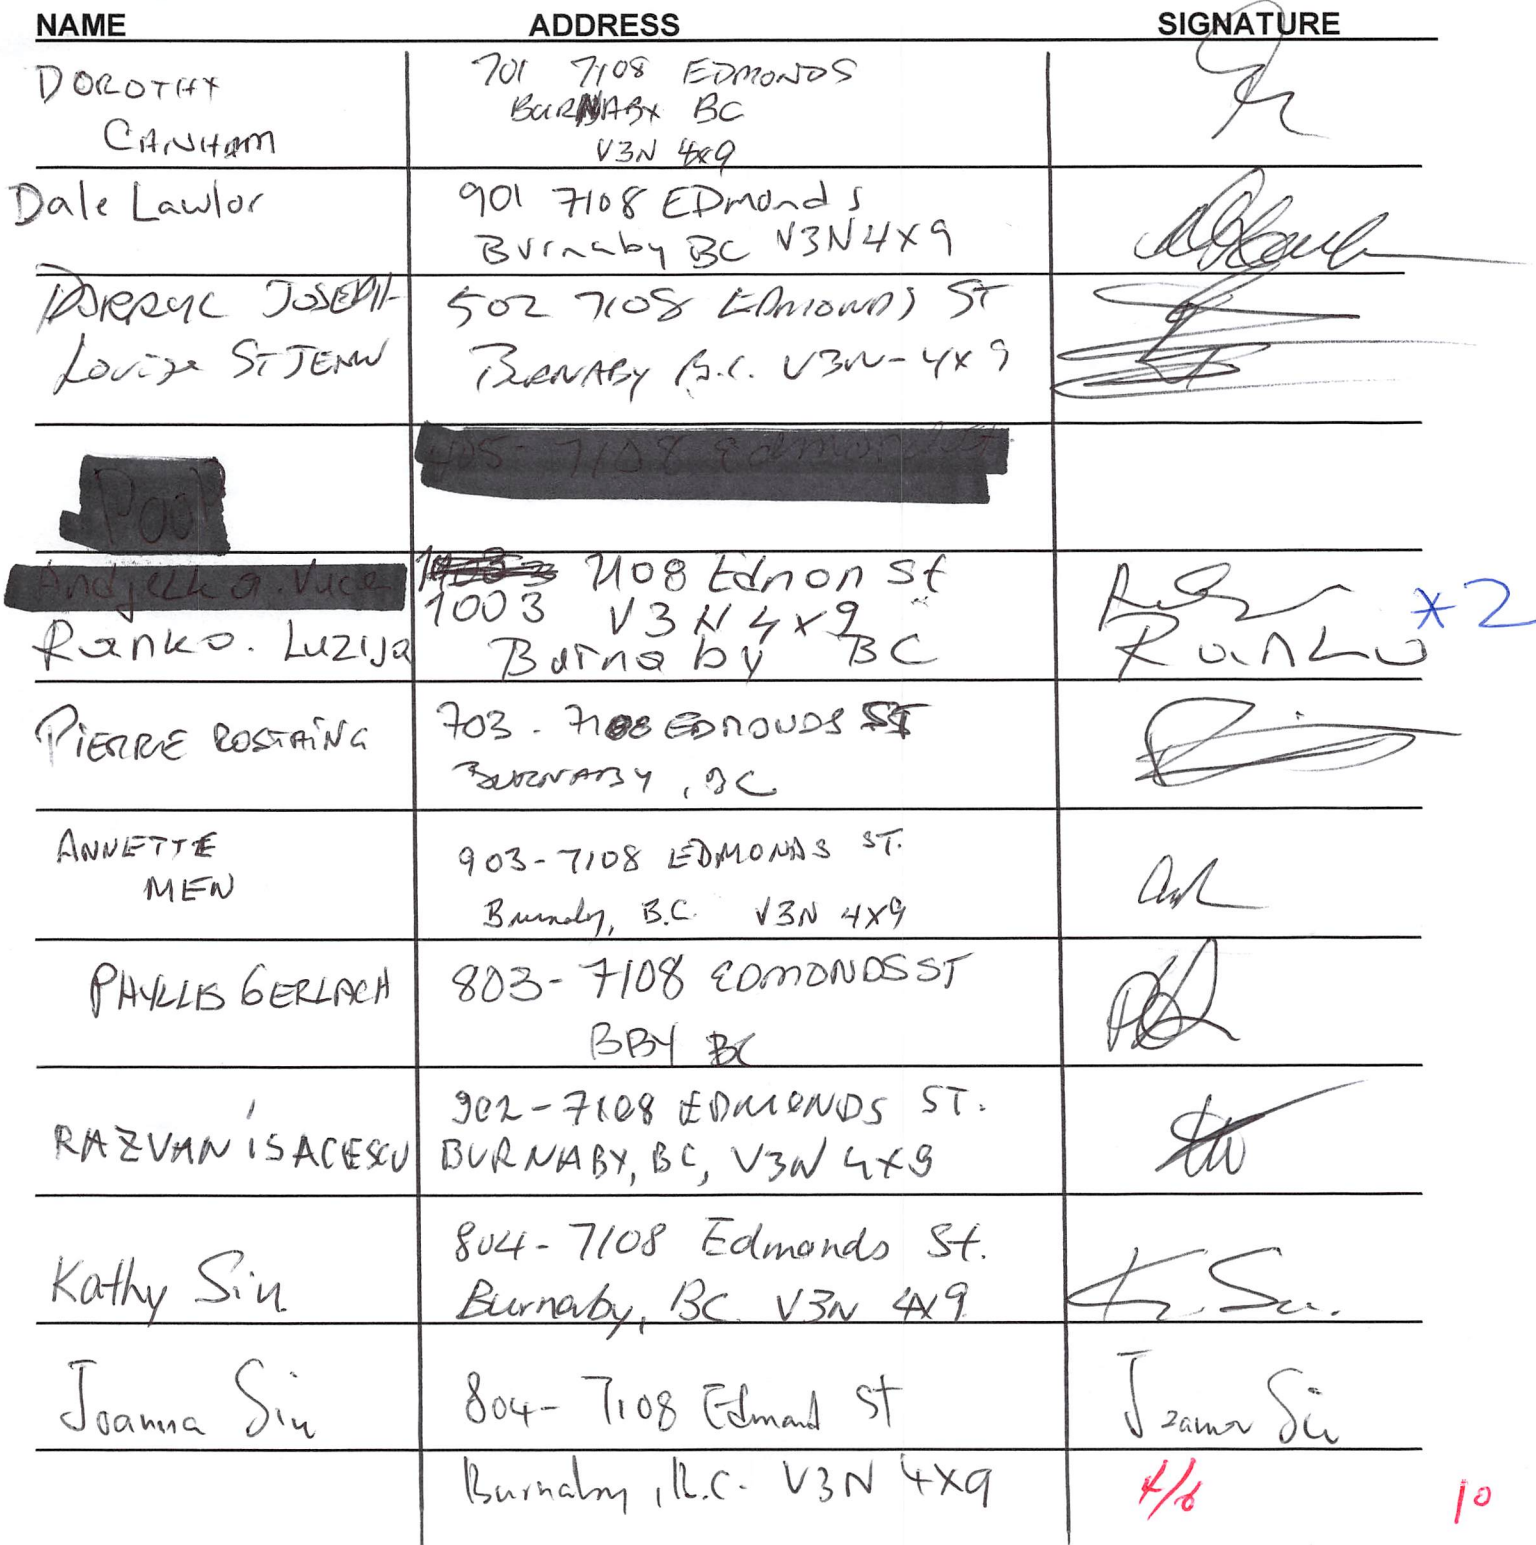 NAME ADDRESS SIGNATURE
DOROTHY
CANHAM
701 7108 EDMONDS
BURNABY BC
V3N 4x9
Dale Lawlor
901 7108 EDmonds
Burnaby BC V3N4X9
DARRYL JOSEPH
Louise ST JEAN
502 7108 EDMONDS ST
BURNABY B.C. V3N-4X9
7108 Edmon St
1003 V3N4x9
Ranko. Luzija
Burnaby BC
Ranko
*2
PIERRE ROSTAING
703. 7108 EDMONDS ST
BURNABY, BC
ANNETTE
MEN
903-7108 EDMONDS ST.
Burnaby, B.C. V3N 4X9
PHYLLIS GERLACH
803-7108 EDMONDS ST
BBY BC
RAZVAN ISACESCU
902-7108 EDMONDS ST.
BURNABY, BC, V3N 4X9
Kathy Siu
804-7108 Edmonds St.
Burnaby, BC V3N 4X9
K. Siu.
Joanna Siu
804-7108 Edmond St
Joanna Siu
Burnaby, B.C. V3N 4X9
10